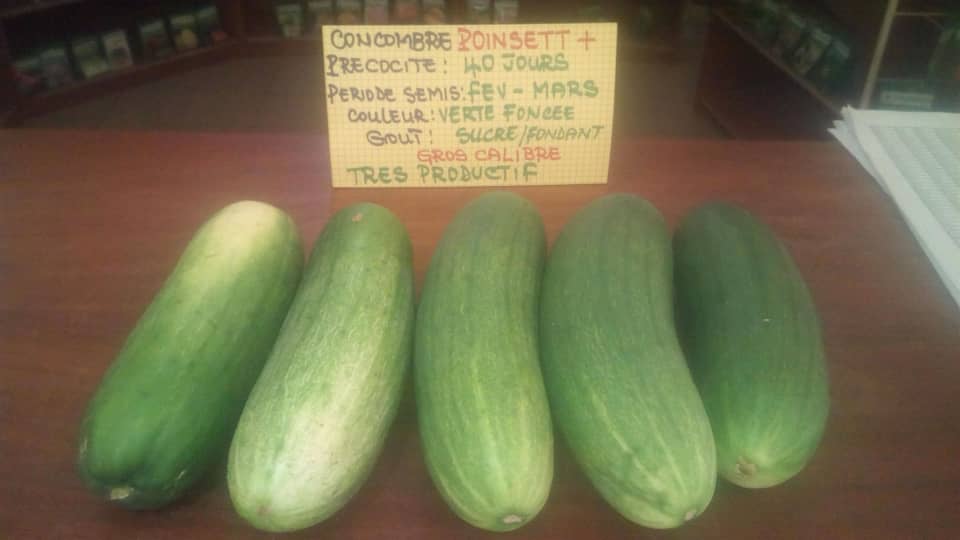 CONCOMBRE POINSETT +
PRECOCITE: 40 JOURS
PERIODE SEMIS: FEV - MARS
COULEUR: VERTE FONCEE
GOUT: SUCRE/FONDANT
GROS CALIBRE
TRES PRODUCTIF